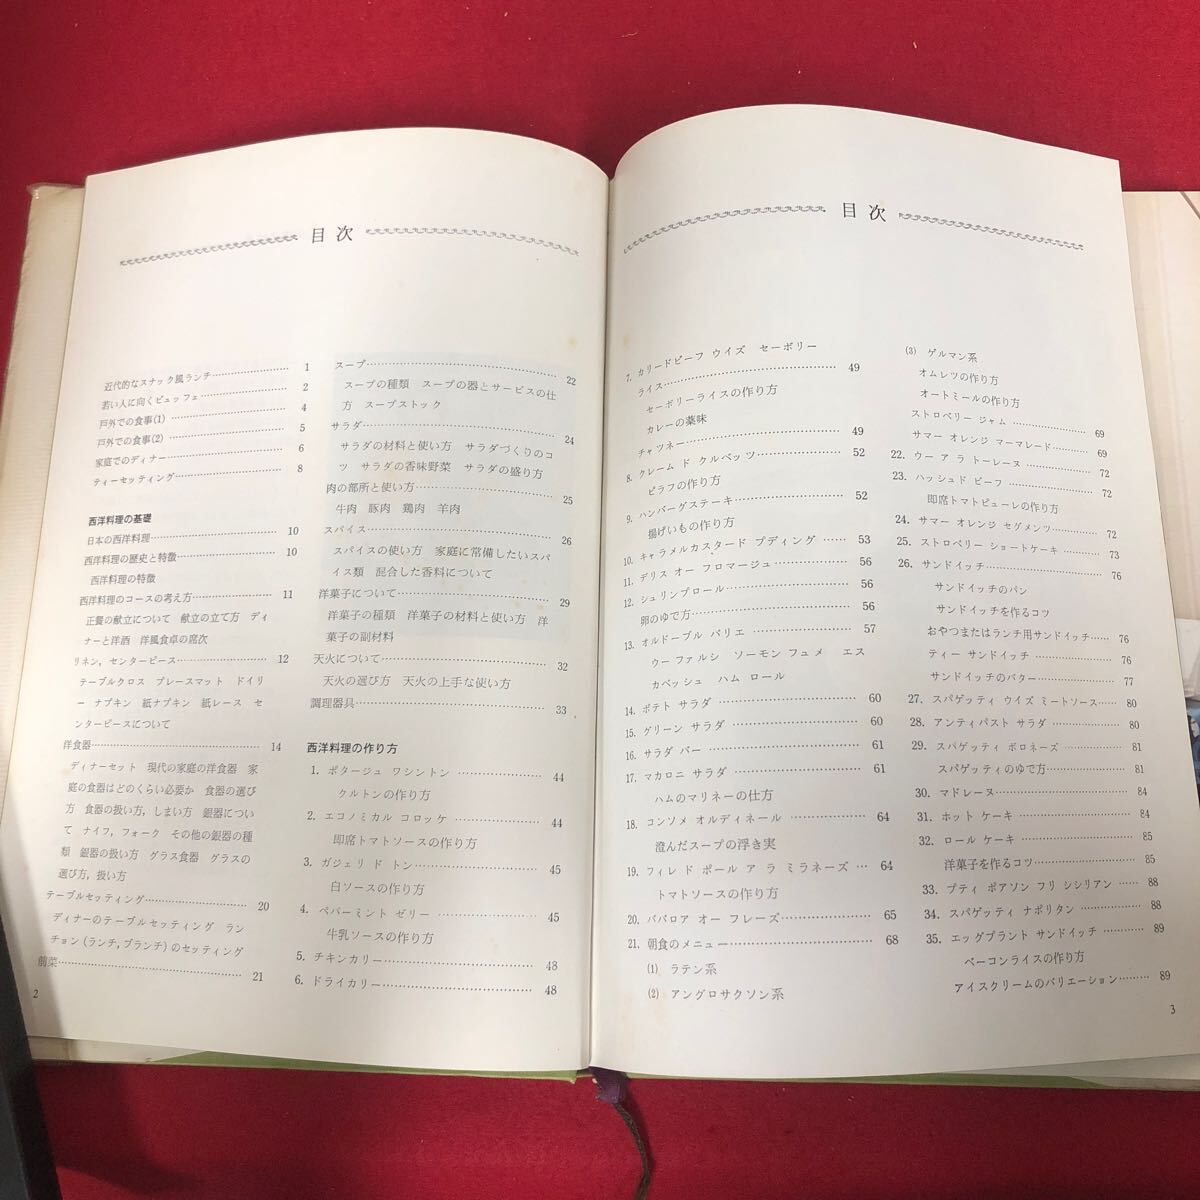 目次
近代的なスナック風ランチ……………… 1
若い人に向くビュッフェ……………… 2
戸外での食事(1) ……………… 4
戸外での食事(2) ……………… 5
家庭でのディナー……………… 6
ティーセッティング……………… 8
西洋料理の基礎
日本の西洋料理……………… 10
西洋料理の歴史と特徴……………… 10
西洋料理の特徴
西洋料理のコースの考え方……………… 11
正餐の献立について 献立の立て方 ディ
ナーと洋酒 洋風食卓の席次
リネン，センターピース……………… 12
テーブルクロス プレースマット ドイリ
ー ナプキン 紙ナプキン 紙レース セ
ンターピースについて
洋食器……………… 14
ディナーセット 現代の家庭の洋食器 家
庭の食器はどのくらい必要か 食器の選び
方 食器の扱い方，しまい方 銀器につい
て ナイフ，フォーク その他の銀器の種
類 銀器の扱い方 グラス食器 グラスの
選び方，扱い方
テーブルセッティング……………… 20
ディナーのテーブルセッティング ラン
チョン(ランチ，ブランチ)のセッティング
前菜……………… 21
2
スープ……………… 22
スープの種類 スープの器とサービスの仕
方 スープストック
サラダ……………… 24
サラダの材料と使い方 サラダづくりのコ
ツ サラダの香味野菜 サラダの盛り方
肉の部所と使い方……………… 25
牛肉 豚肉 鶏肉 羊肉
スパイス……………… 26
スパイスの使い方 家庭に常備したいスパ
イス類 混合した香料について
洋菓子について……………… 29
洋菓子の種類 洋菓子の材料と使い方 洋
菓子の副材料
天火について……………… 32
天火の選び方 天火の上手な使い方
調理器具……………… 33
西洋料理の作り方
1. ポタージュ ワシントン ……………… 44
クルトンの作り方
2. エコノミカル コロッケ ……………… 44
即席トマトソースの作り方
3. ガジェリ ド トン……………… 45
白ソースの作り方
4. ペパーミント ゼリー ……………… 45
牛乳ソースの作り方
5. チキンカリー……………… 48
6. ドライカリー……………… 48
目次
7. カリードビーフ ウイズ セーボリー
ライス……………… 49
セーボリーライスの作り方
カレーの薬味
チャツネー……………… 49
8. クレーム ド クルベッツ……………… 52
ピラフの作り方
9. ハンバーグステーキ……………… 52
揚げいもの作り方
10. キャラメルカスタード プディング …… 53
11. デリス オー フロマージュ……………… 56
12. シュリンプロール……………… 56
卵のゆで方……………… 56
13. オルドーブル バリエ ……………… 57
ウー ファルシ ソーモン フュメ エス
カベッシュ ハム ロール
14. ポテト サラダ ……………… 60
15. グリーン サラダ……………… 60
16. サラダ バー ……………… 61
17. マカロニ サラダ ……………… 61
ハムのマリネーの仕方
18. コンソメ オルディネール ……………… 64
澄んだスープの浮き実
19. フィレ ド ポール ア ラ ミラネーズ … 64
トマトソースの作り方
20. ババロア オー フレーズ……………… 65
21. 朝食のメニュー……………… 68
(1) ラテン系
(2) アングロサクソン系
(3) ゲルマン系
オムレツの作り方
オートミールの作り方
ストロベリー ジャム ……………… 69
サマー オレンジ マーマレード……… 69
22. ウー ア ラ トーレーヌ ……………… 72
23. ハッシュド ビーフ ……………… 72
即席トマトピューレの作り方
24. サマー オレンジ セグメンツ……… 72
25. ストロベリー ショートケーキ……… 73
26. サンドイッチ……………… 76
サンドイッチのパン
サンドイッチを作るコツ
おやつまたはランチ用サンドイッチ…… 76
ティー サンドイッチ ……………… 76
サンドイッチのバター……………… 77
27. スパゲッティ ウイズ ミートソース…… 80
28. アンティパスト サラダ ……………… 80
29. スパゲッティ ボロネーズ……………… 81
スパゲッティのゆで方……………… 81
30. マドレーヌ……………… 84
31. ホット ケーキ ……………… 84
32. ロール ケーキ ……………… 85
洋菓子を作るコツ……………… 85
33. プティ ポアソン フリ シシリアン …… 88
34. スパゲッティ ナポリタン ……………… 88
35. エッグプラント サンドイッチ ……… 89
ベーコンライスの作り方
アイスクリームのバリエーション……… 89
3